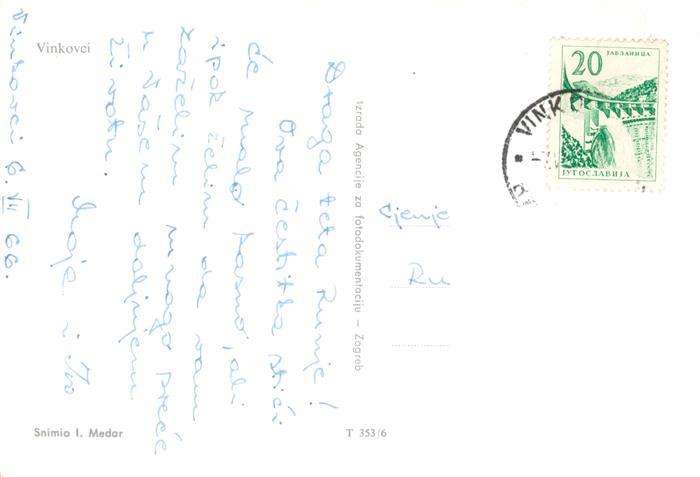 Vinkovci
Vinkovci 6. VII 66.
Draga teta Runje!
Ova čestitka stići
će malo kasno, ali
ipak želim da vam
zaželim mnogo sreće
u Vašem daljnjem
životu.
Izrada Agencije za fotodokumentaciju – Zagreb
Cjenje
Ru
Snimio I. Medar
T 353/6
20
ЈАБЛАНИЦА
ЈУГОСЛАВИЈА
VINK